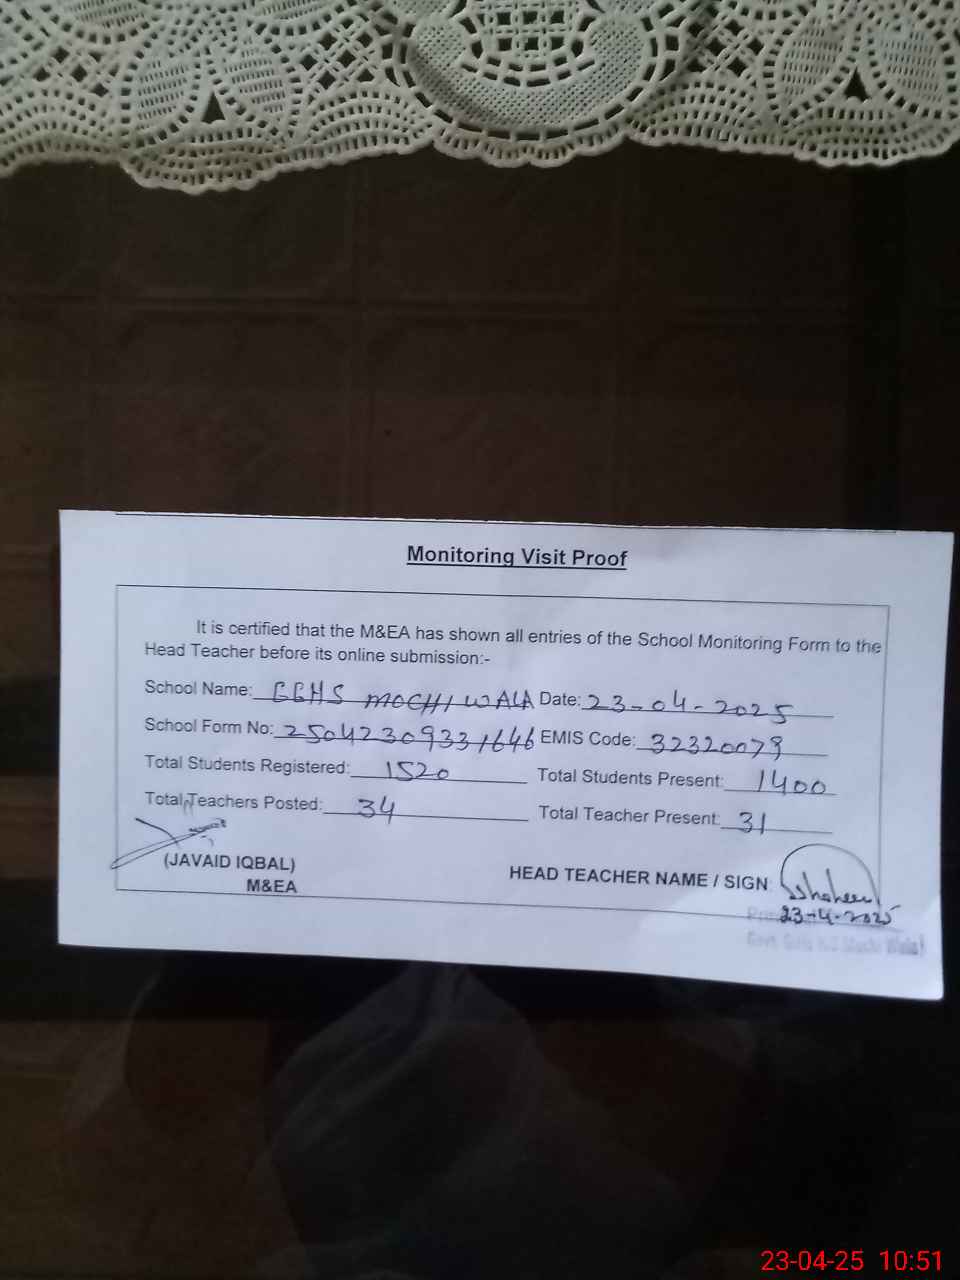 Monitoring Visit Proof
It is certified that the M&EA has shown all entries of the School Monitoring Form to the
Head Teacher before its online submission:-
School Name: GGHS MOCHI WALA Date: 23-04-2025
School Form No: 25042309331646 EMIS Code: 32320079
Total Students Registered: 1520 Total Students Present: 1400
Total Teachers Posted: 34 Total Teacher Present: 31
(JAVAID IQBAL)
M&EA
HEAD TEACHER NAME / SIGN: Shaheen
23-4-2025
23-04-25 10:51